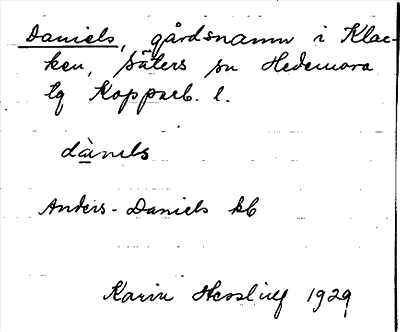 Daniels, gårdsnamn i Klac-
ken, Säters sn Hedemora
tg Kopparb. l.
dànils
Anders-Daniels kb
Karin 1929